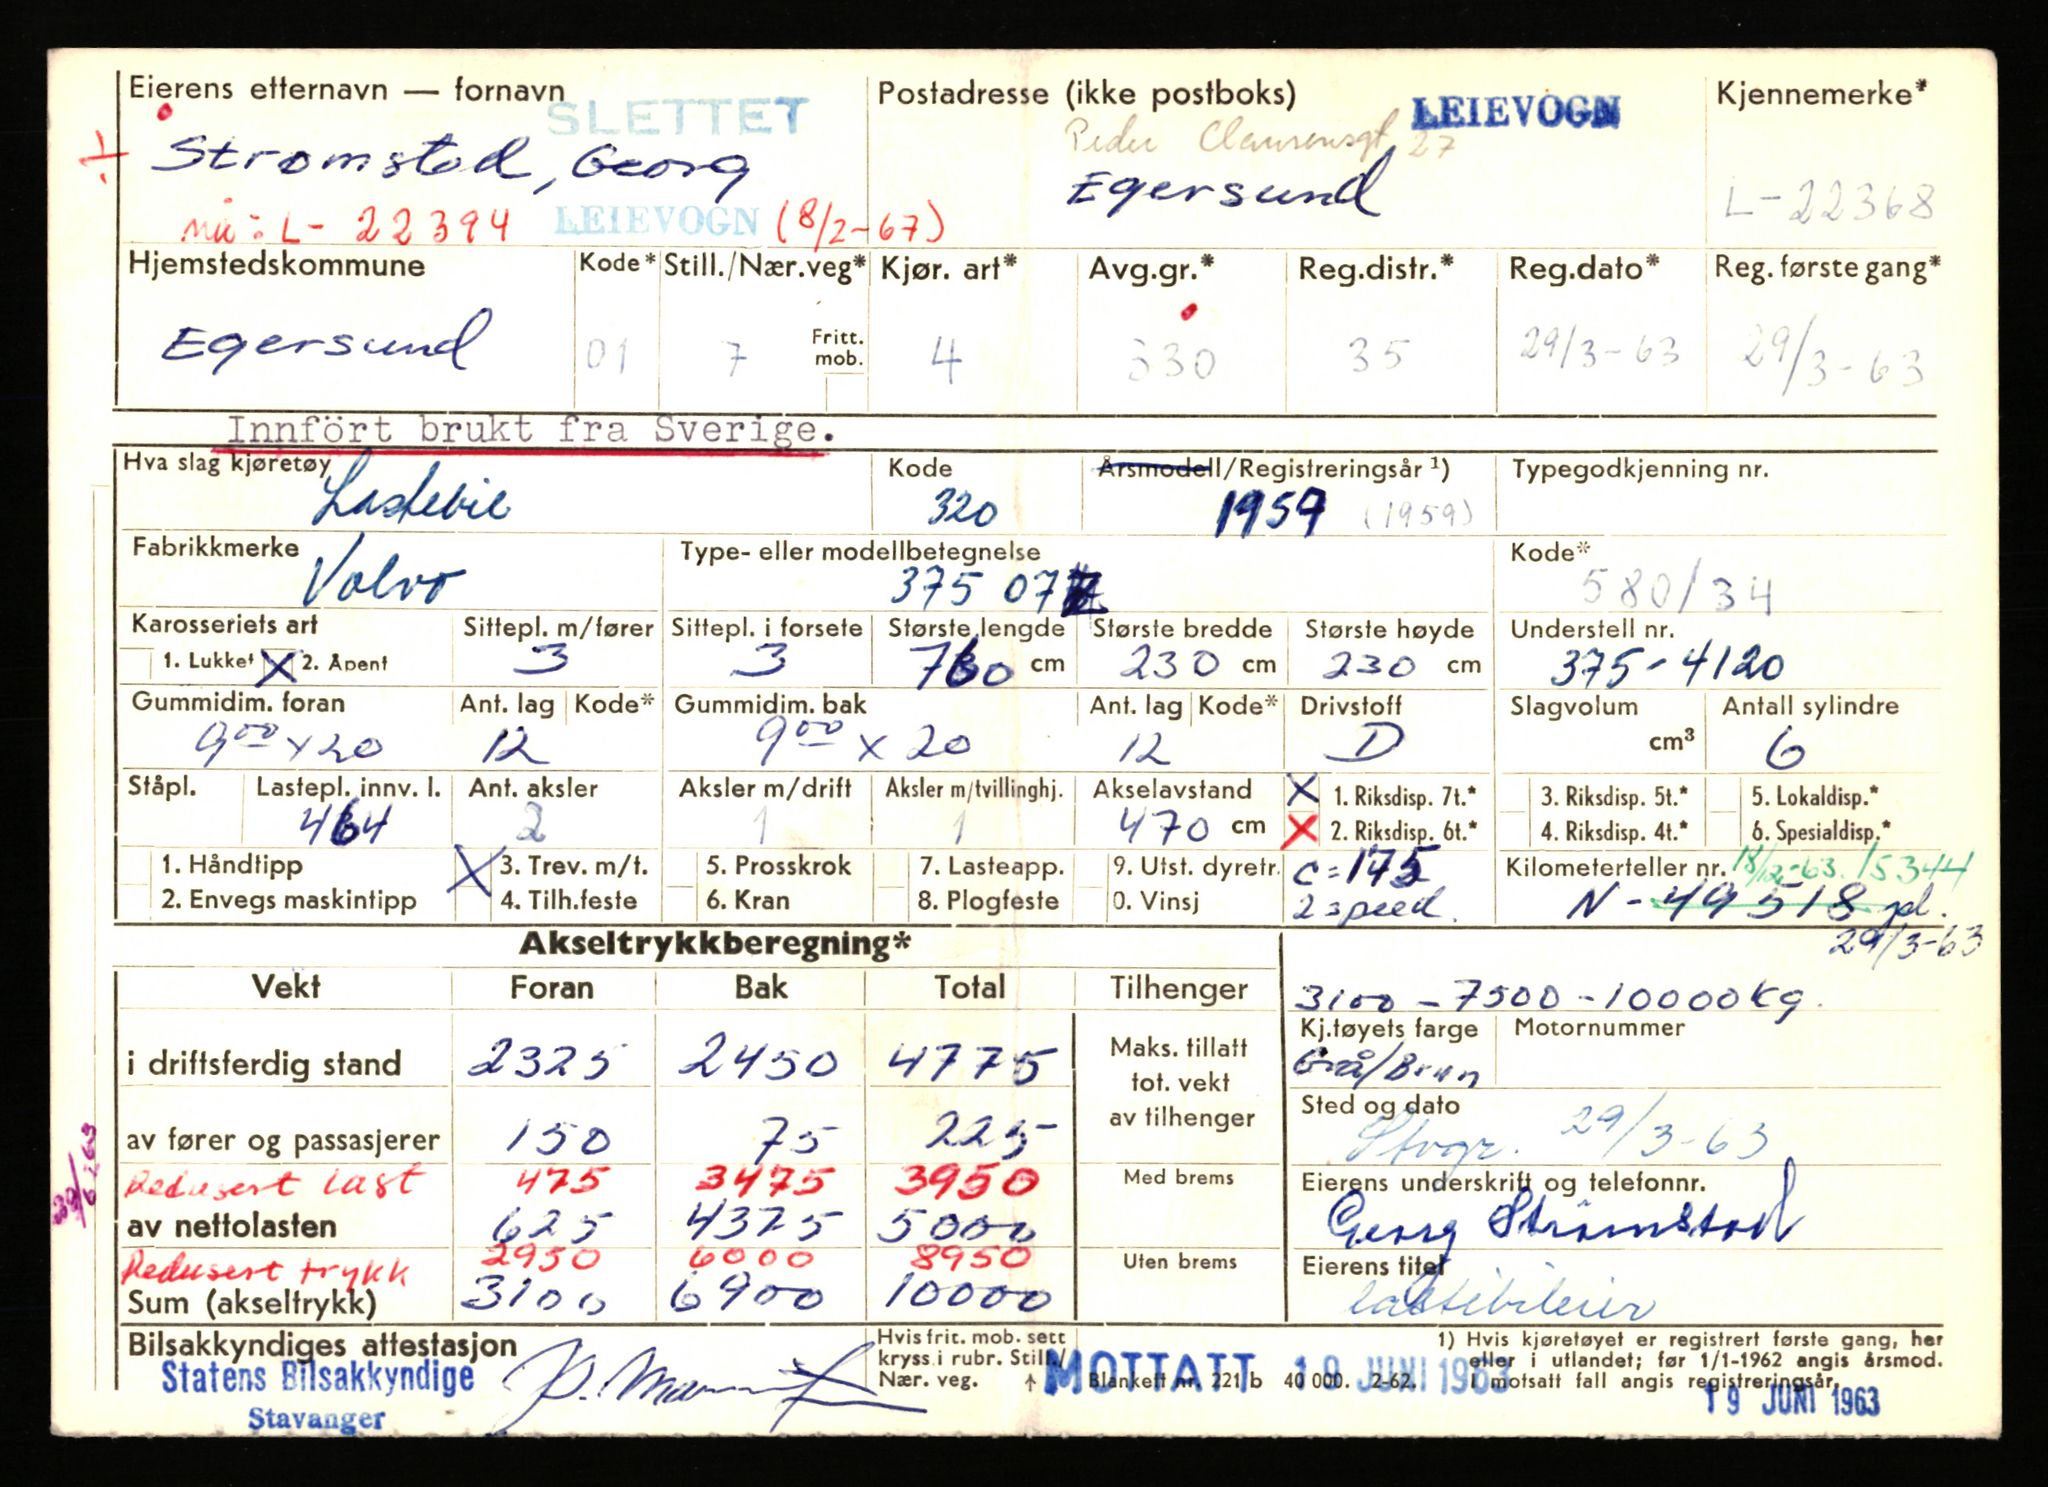 Eierens etternavn — fornavn
SLETTET
Postadresse (ikke postboks)
LEIEVOGN
Kjennemerke*
Strømstad, Georg
Peder Clausensgt 27
Egersund
L-22368
nå: L- 22394 LEIEVOGN (8/2-67)
Hjemstedskommune Kode* Still./Nær.veg* Kjør. art* Avg.gr.* Reg.distr.* Reg.dato* Reg. første gang*
Egersund 01 7 Fritt. mob. 4 330 35 29/3-63 29/3-63
Innfört brukt fra Sverige.
Hva slag kjøretøy Kode Årsmodell/Registreringsår ¹) Typegodkjenning nr.
Lastebil 320 1959 (1959)
Fabrikkmerke Type- eller modellbetegnelse Kode*
Volvo 375 07 580/34
Karosseriets art Sittepl. m/fører Sittepl. i forsete Største lengde Største bredde Største høyde Understell nr.
1. Lukket X 2. Åpent 3 3 cm 230 cm 230 cm 375-4120
Gummidim. foran Ant. lag Kode* Gummidim. bak Ant. lag Kode* Drivstoff Slagvolum Antall sylindre
9⁰⁰ x 20 12 9⁰⁰ x 20 12 D cm³ 6
Ståpl. Lastepl. innv. l. Ant. aksler Aksler m/drift Aksler m/tvillinghj. Akselavstand X 1. Riksdisp. 7t.* 3. Riksdisp. 5t.* 5. Lokaldisp.*
464 2 1 1 470 cm X 2. Riksdisp. 6t.* 4. Riksdisp. 4t.* 6. Spesialdisp.*
1. Håndtipp X 3. Trev. m/t. 5. Prosskrok 7. Lasteapp. 9. Utst. dyretr. c=175 Kilometerteller nr. 18/12-63. 15344
2. Envegs maskintipp 4. Tilh.feste 6. Kran 8. Plogfeste 0. Vinsj 2 speed. N-49518 pl.
29/3-63
Akseltrykkberegning*
Vekt Foran Bak Total Tilhenger 3100-7500-10000 kg.
Kj.tøyets farge Motornummer
i driftsferdig stand 2325 2450 4775 Maks. tillatt tot. vekt av tilhenger Grå/Brun
Sted og dato
av fører og passasjerer 150 75 225 Stvgr. 29/3-63
Redusert last 475 3475 3950 Med brems Eierens underskrift og telefonnr.
av nettolasten 625 4375 5000 Georg Strømstad
Redusert trykk 2950 6000 8950 Uten brems Eierens titel
Sum (akseltrykk) 3100 6900 10000 lastebileier
Bilsakkyndiges attestasjon
Statens Bilsakkyndige
Stavanger
Hvis frit. mob. sett
kryss i rubr. Still./
Nær. veg. ↑
1) Hvis kjøretøyet er registrert første gang, her
eller i utlandet; før 1/1-1962 angis årsmod.
I motsatt fall angis registreringsår.
Blankett nr. 221 b 40 000. 2-62.
MOTTATT 19 JUNI 1963
19 JUNI 1963